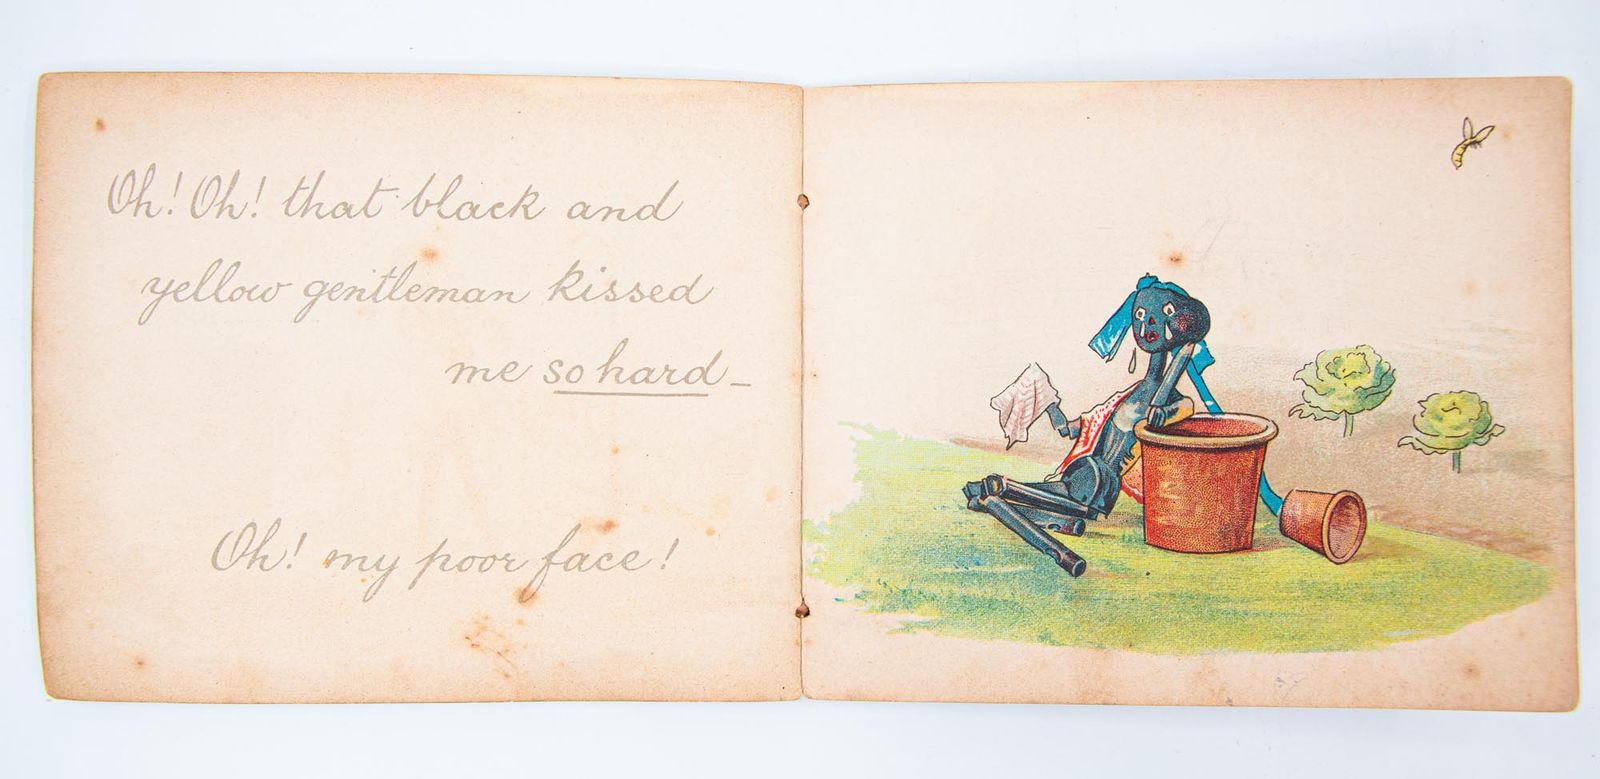 Oh! Oh! that black and
yellow gentleman kissed
me so hard_
Oh! my poor face!